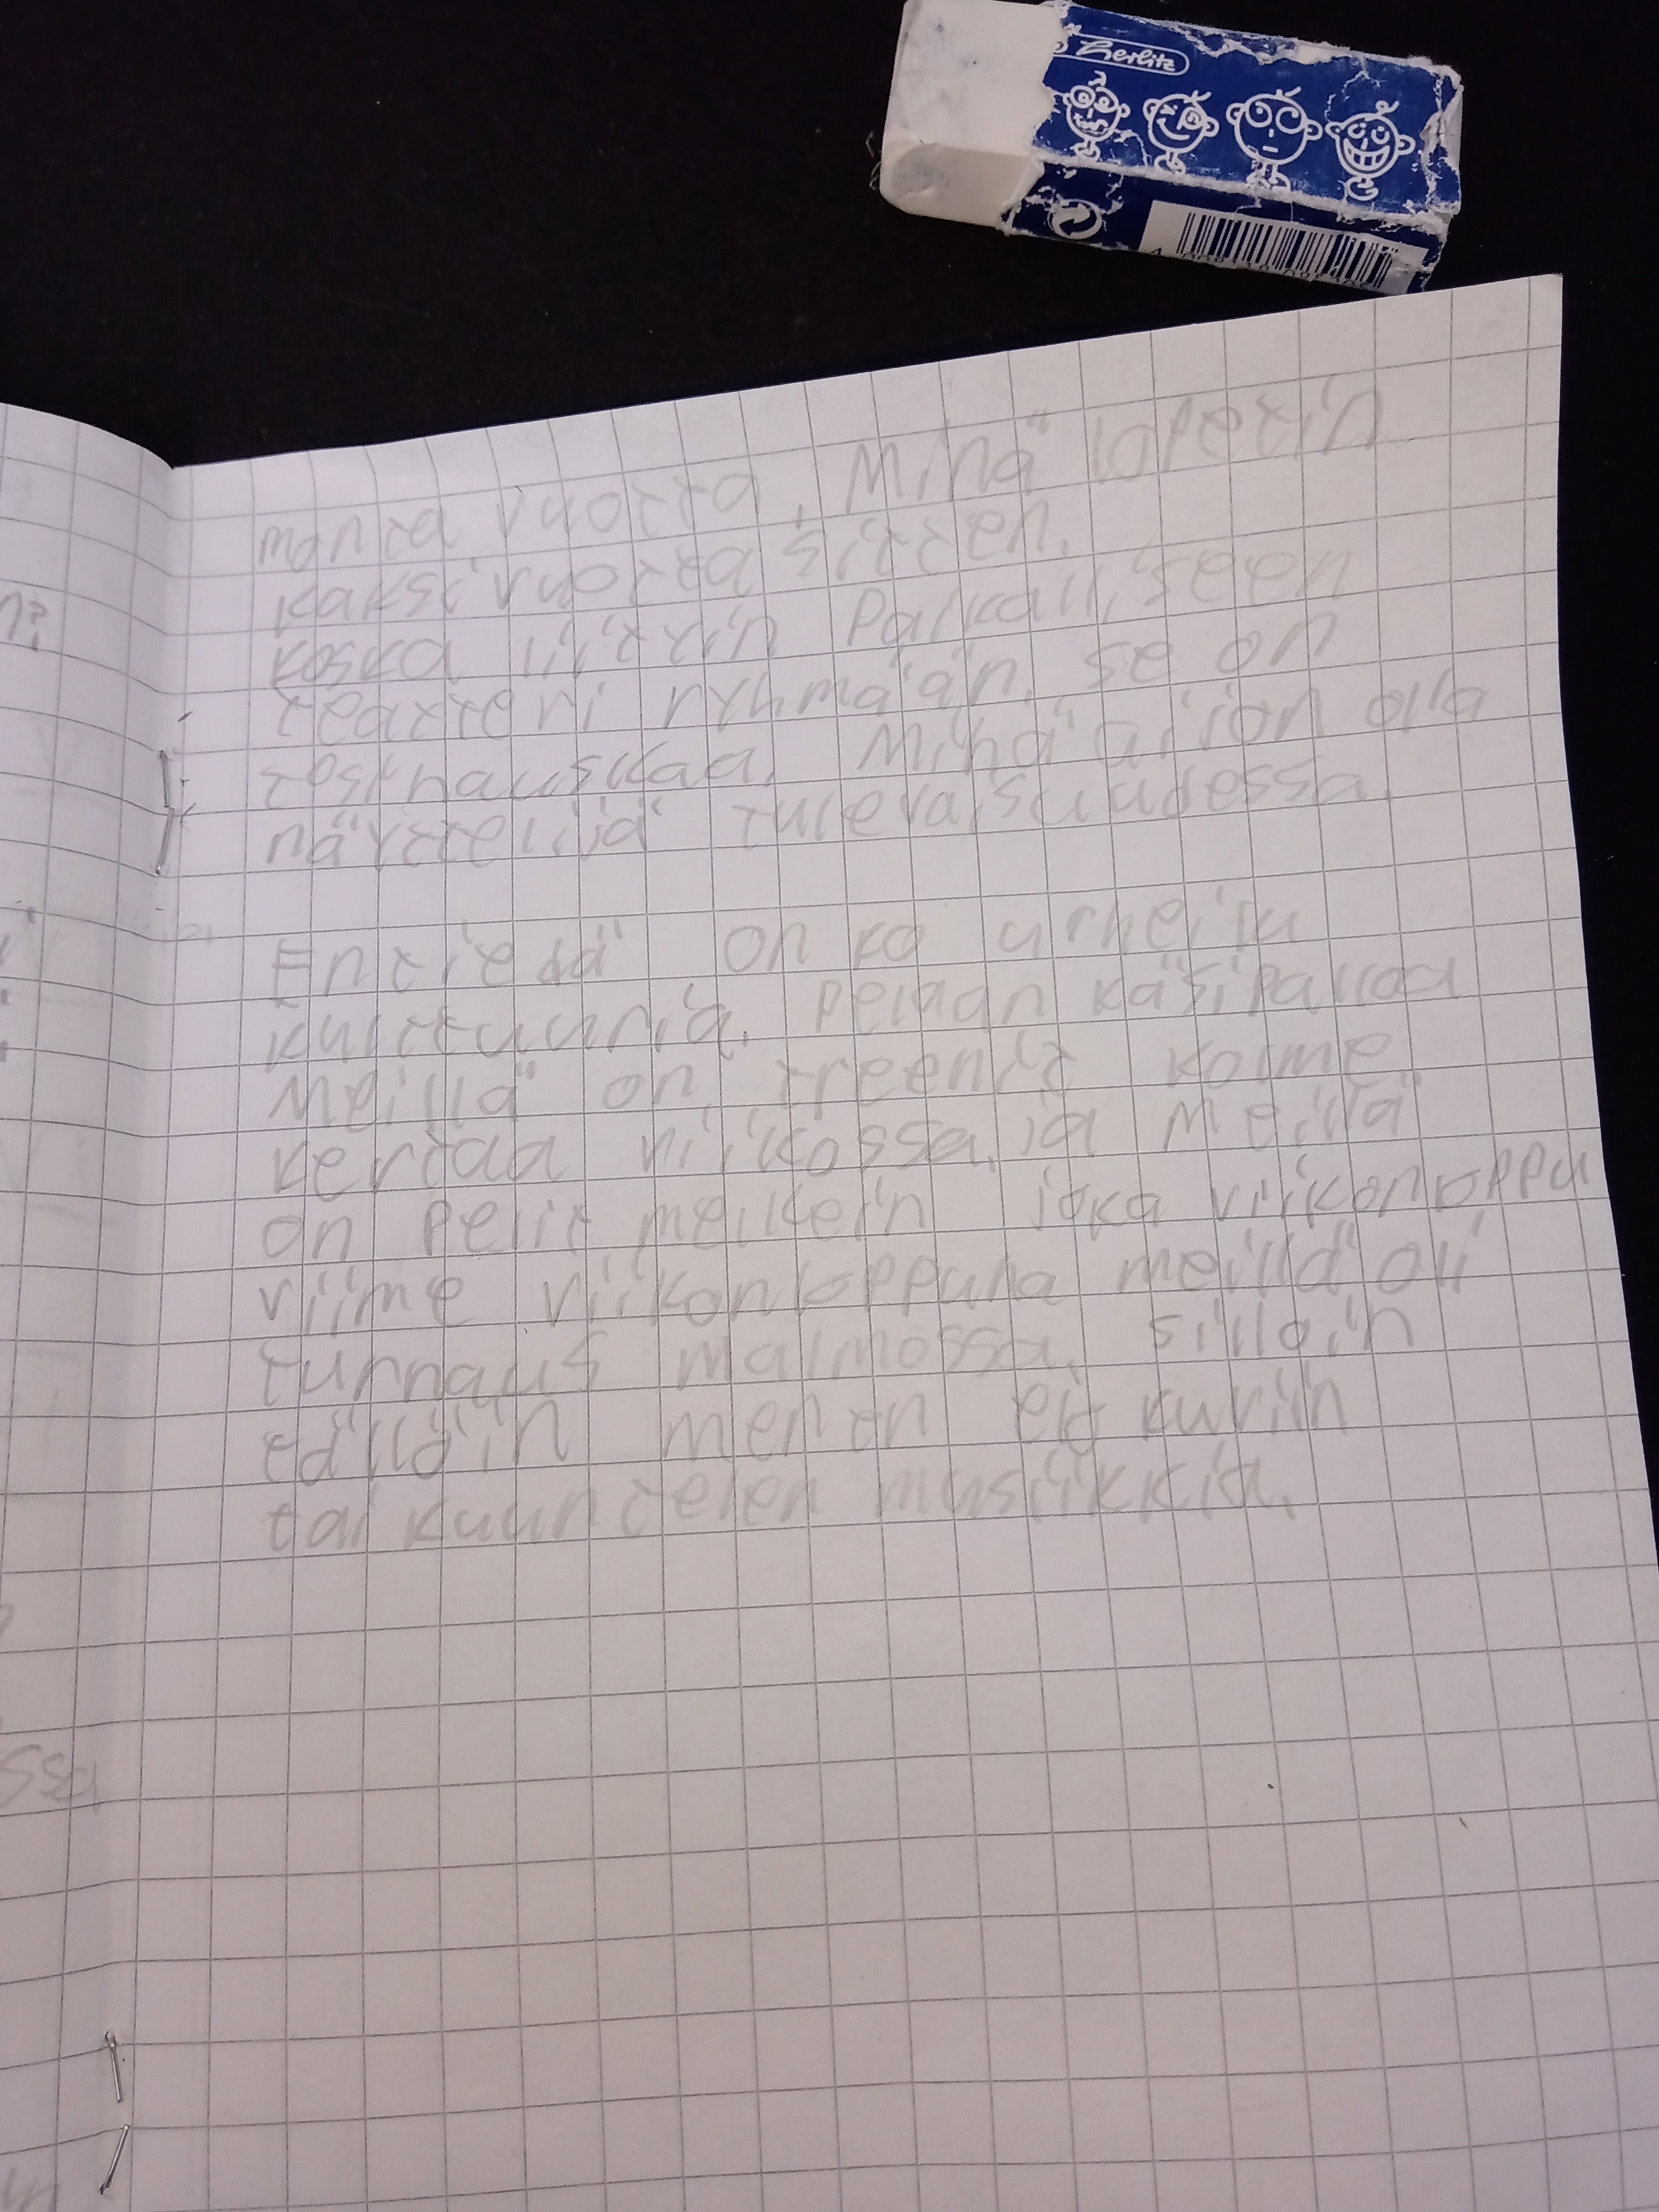 Herlitz
monta vuotta. Minä lopetin
kaksi vuotta sitten.
koska liitin paikalliseen
teatteri ryhmään. se on
tosi hauskaa. Minä aijon olla
näyttelijä tulevaisuudessa.
En tiedä on ko urheilu
kulttuuria. pelaan käsipalloa
Meillä on treenit kolme
kertaa viikossa ja Meillä
on pelit melkein joka viikonoppu
viime viikonloppuna meillä oli
turnaus malmossa. silloin
tällöin menen elokuviin
tai kuuntelen musiikkia.